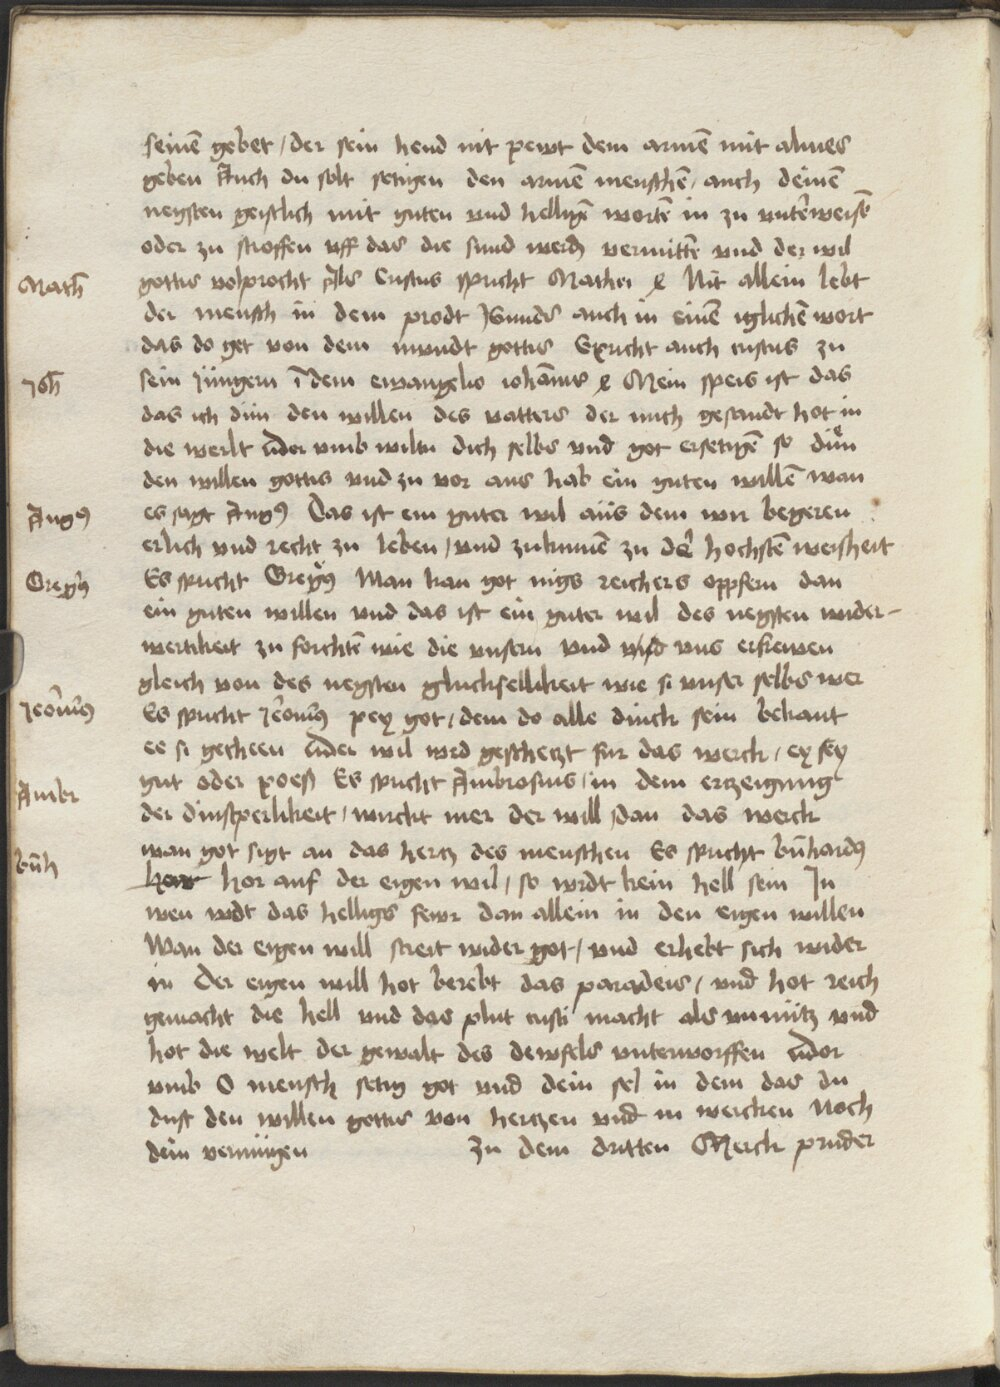 seinē gebet / der sein hend nit pewt dem armē mit almes
geben Auch du solt setigen den armē menschē / auch deinē
negsten geistlich mit guten vnd helligē wortē in zu vnterweisē
oder zu stroffen vff das die sund werdē vermittē vnd der wil
Math
gottis volprocht Als Cristus spricht Mathei Nit allein lebt
der mensch in dem prodt Sunder auch in einē iglichē wort
das do get von dem mundt gottis Spricht auch cristus zu
Joh
sein Jüngern ī dem ewangelio iohānis Mein speis ist das
das ich dün den willen des vatters der mich gesandt hot in
die werlt dor vmb wiltu dich selbs vnd got ersetigē so düe
den willen gottis vnd zu vor aus hab ein guten willē wan
Augꝰ
es sagt Augꝰ Das ist ein guter wil aüs dem wir begeren
erlich vnd recht zu leben / vnd zukumē zu der hochstē weisheit
Gregꝰ
Es spricht Gregꝰ Man kan got nigs reichers oppfern dan
ein guten willen vnd das ist ein guter wil des negsten wider-
wertikeit zu forchtē wie die vnsern vnd vns erfrewen
gleich von des negsten glucksellikeit wie si vnser selbs wer
Jeōimꝰ
Es spricht Jeōimꝰ pey got / dem do alle dinck sein bekant
ee si gescheen Der wil wird geschetzt fur das werck / ey sey
gut oder poeß Es spricht Ambrosius / in dem erzeigung
Ambr
der dinstperlikeit / wirckt mer der will / dan das werck
wan got sigt an das hertz des menschen Es spricht bn̄hardꝰ
bn̄h
hor auf der eigen wil / so wirdt kein hell sein In
wen wirdt das helligs fewr dan allein in den eigen willen
Wan der eigen will streit wider got / vnd erhebt sich wider
in Der eigen will hot berebt das paradeis / vnd hot reich
gemacht die hell vnd das plut cristi macht als vnnütz vnd
hot die welt der gewalt des dewfels vnterworffen dor
vmb O mensch setig got vnd dein sel in dem das du
dust den willen gottis von hertzen vnd in wercken Noch
dein vermügen Zu dem dritten Merck pruder